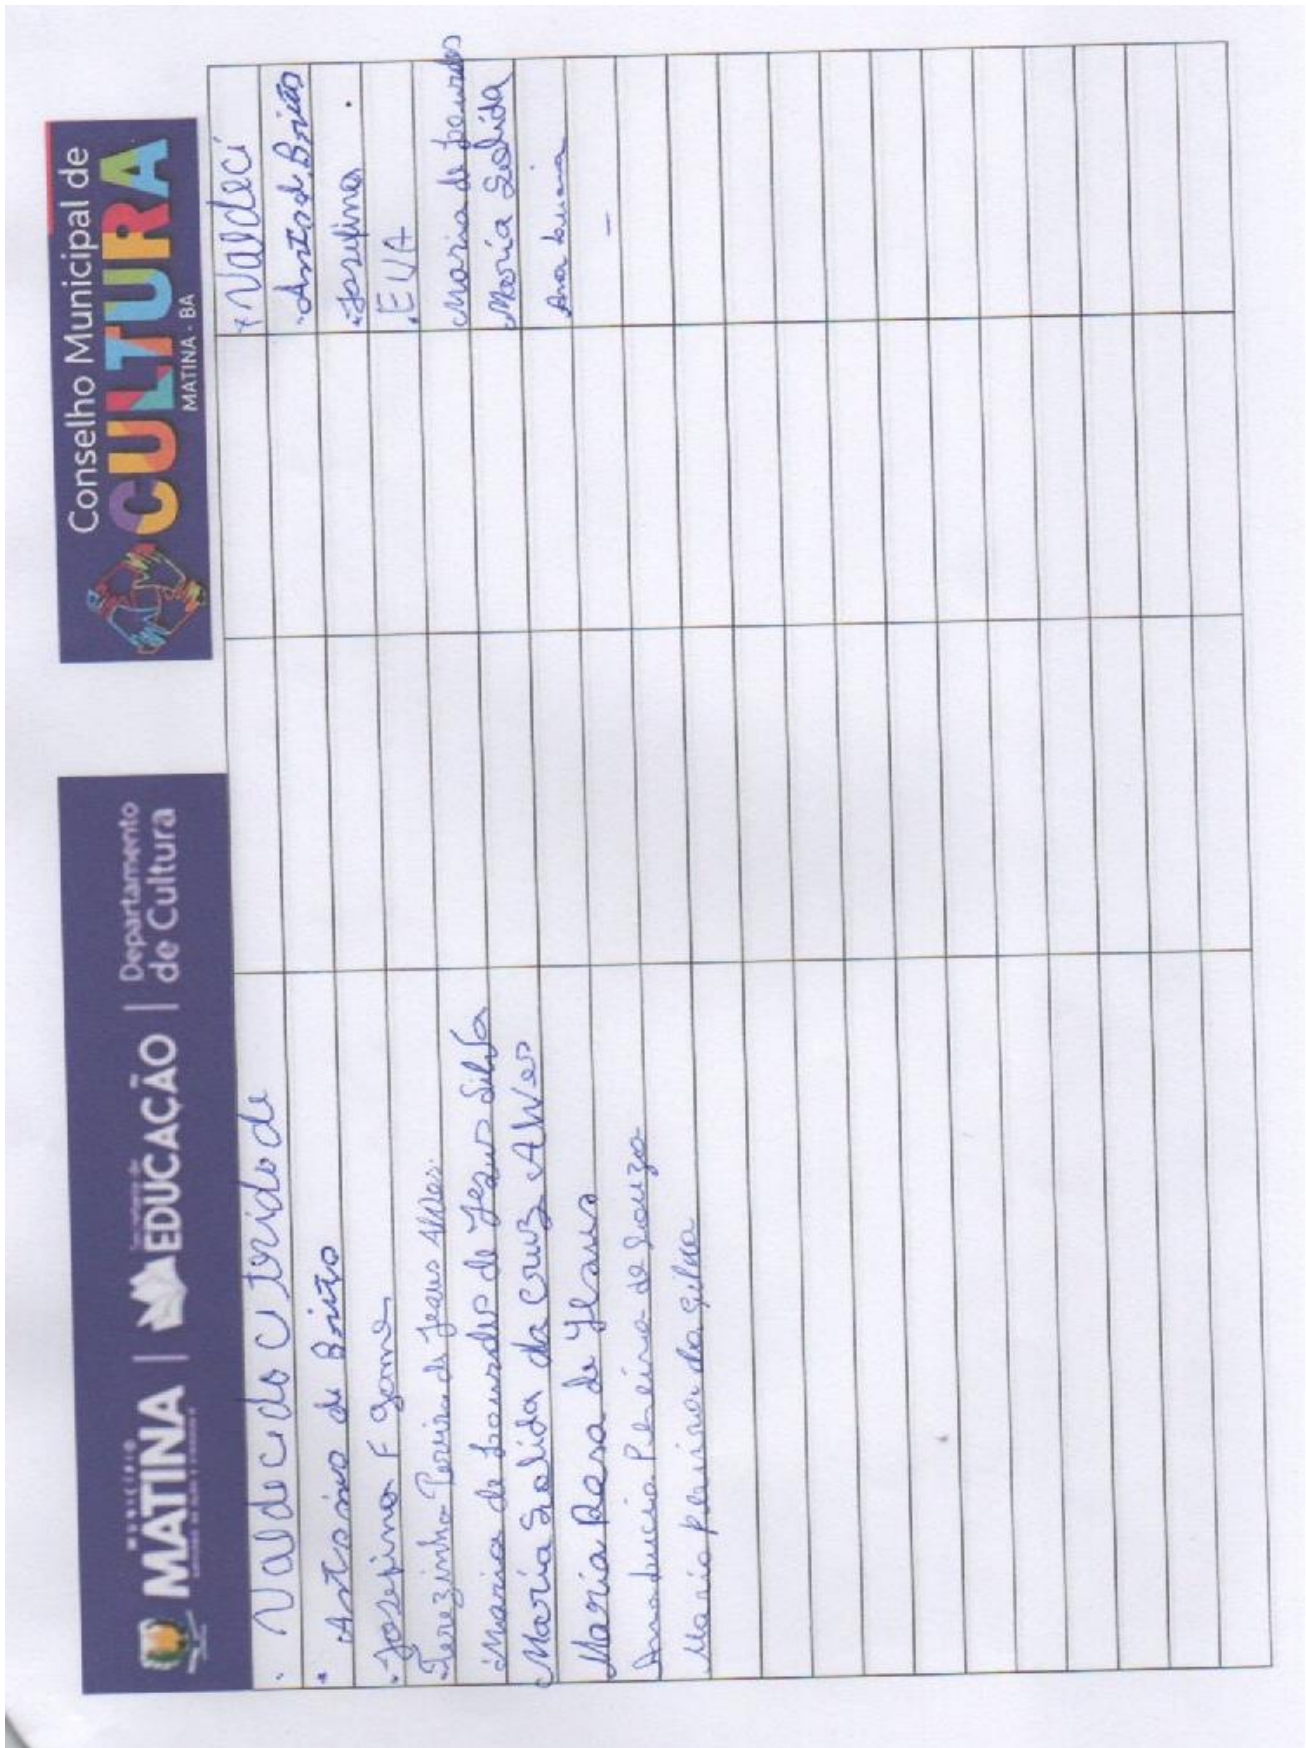 MUNICÍPIO
MATINA
EDUCAÇÃO
Departamento
de Cultura
Conselho Municipal de
CULTURA
MATINA - BA
Valdeci da trindade
Valdeci
Antonio de Brito
Anto de Brito
Josepina F Gome
Josefina
Terezinha Pereira de Jesus Alves
EVA
Maria de Lourdes de Jesus Silva
Maria de Lourdes
Maria Salida da Cruz Alves
Maria Salida
Maria Rosa de Jesus
Ana Lucia
Ana Lucia Pereira de Souza
Maria Pereira da Silva